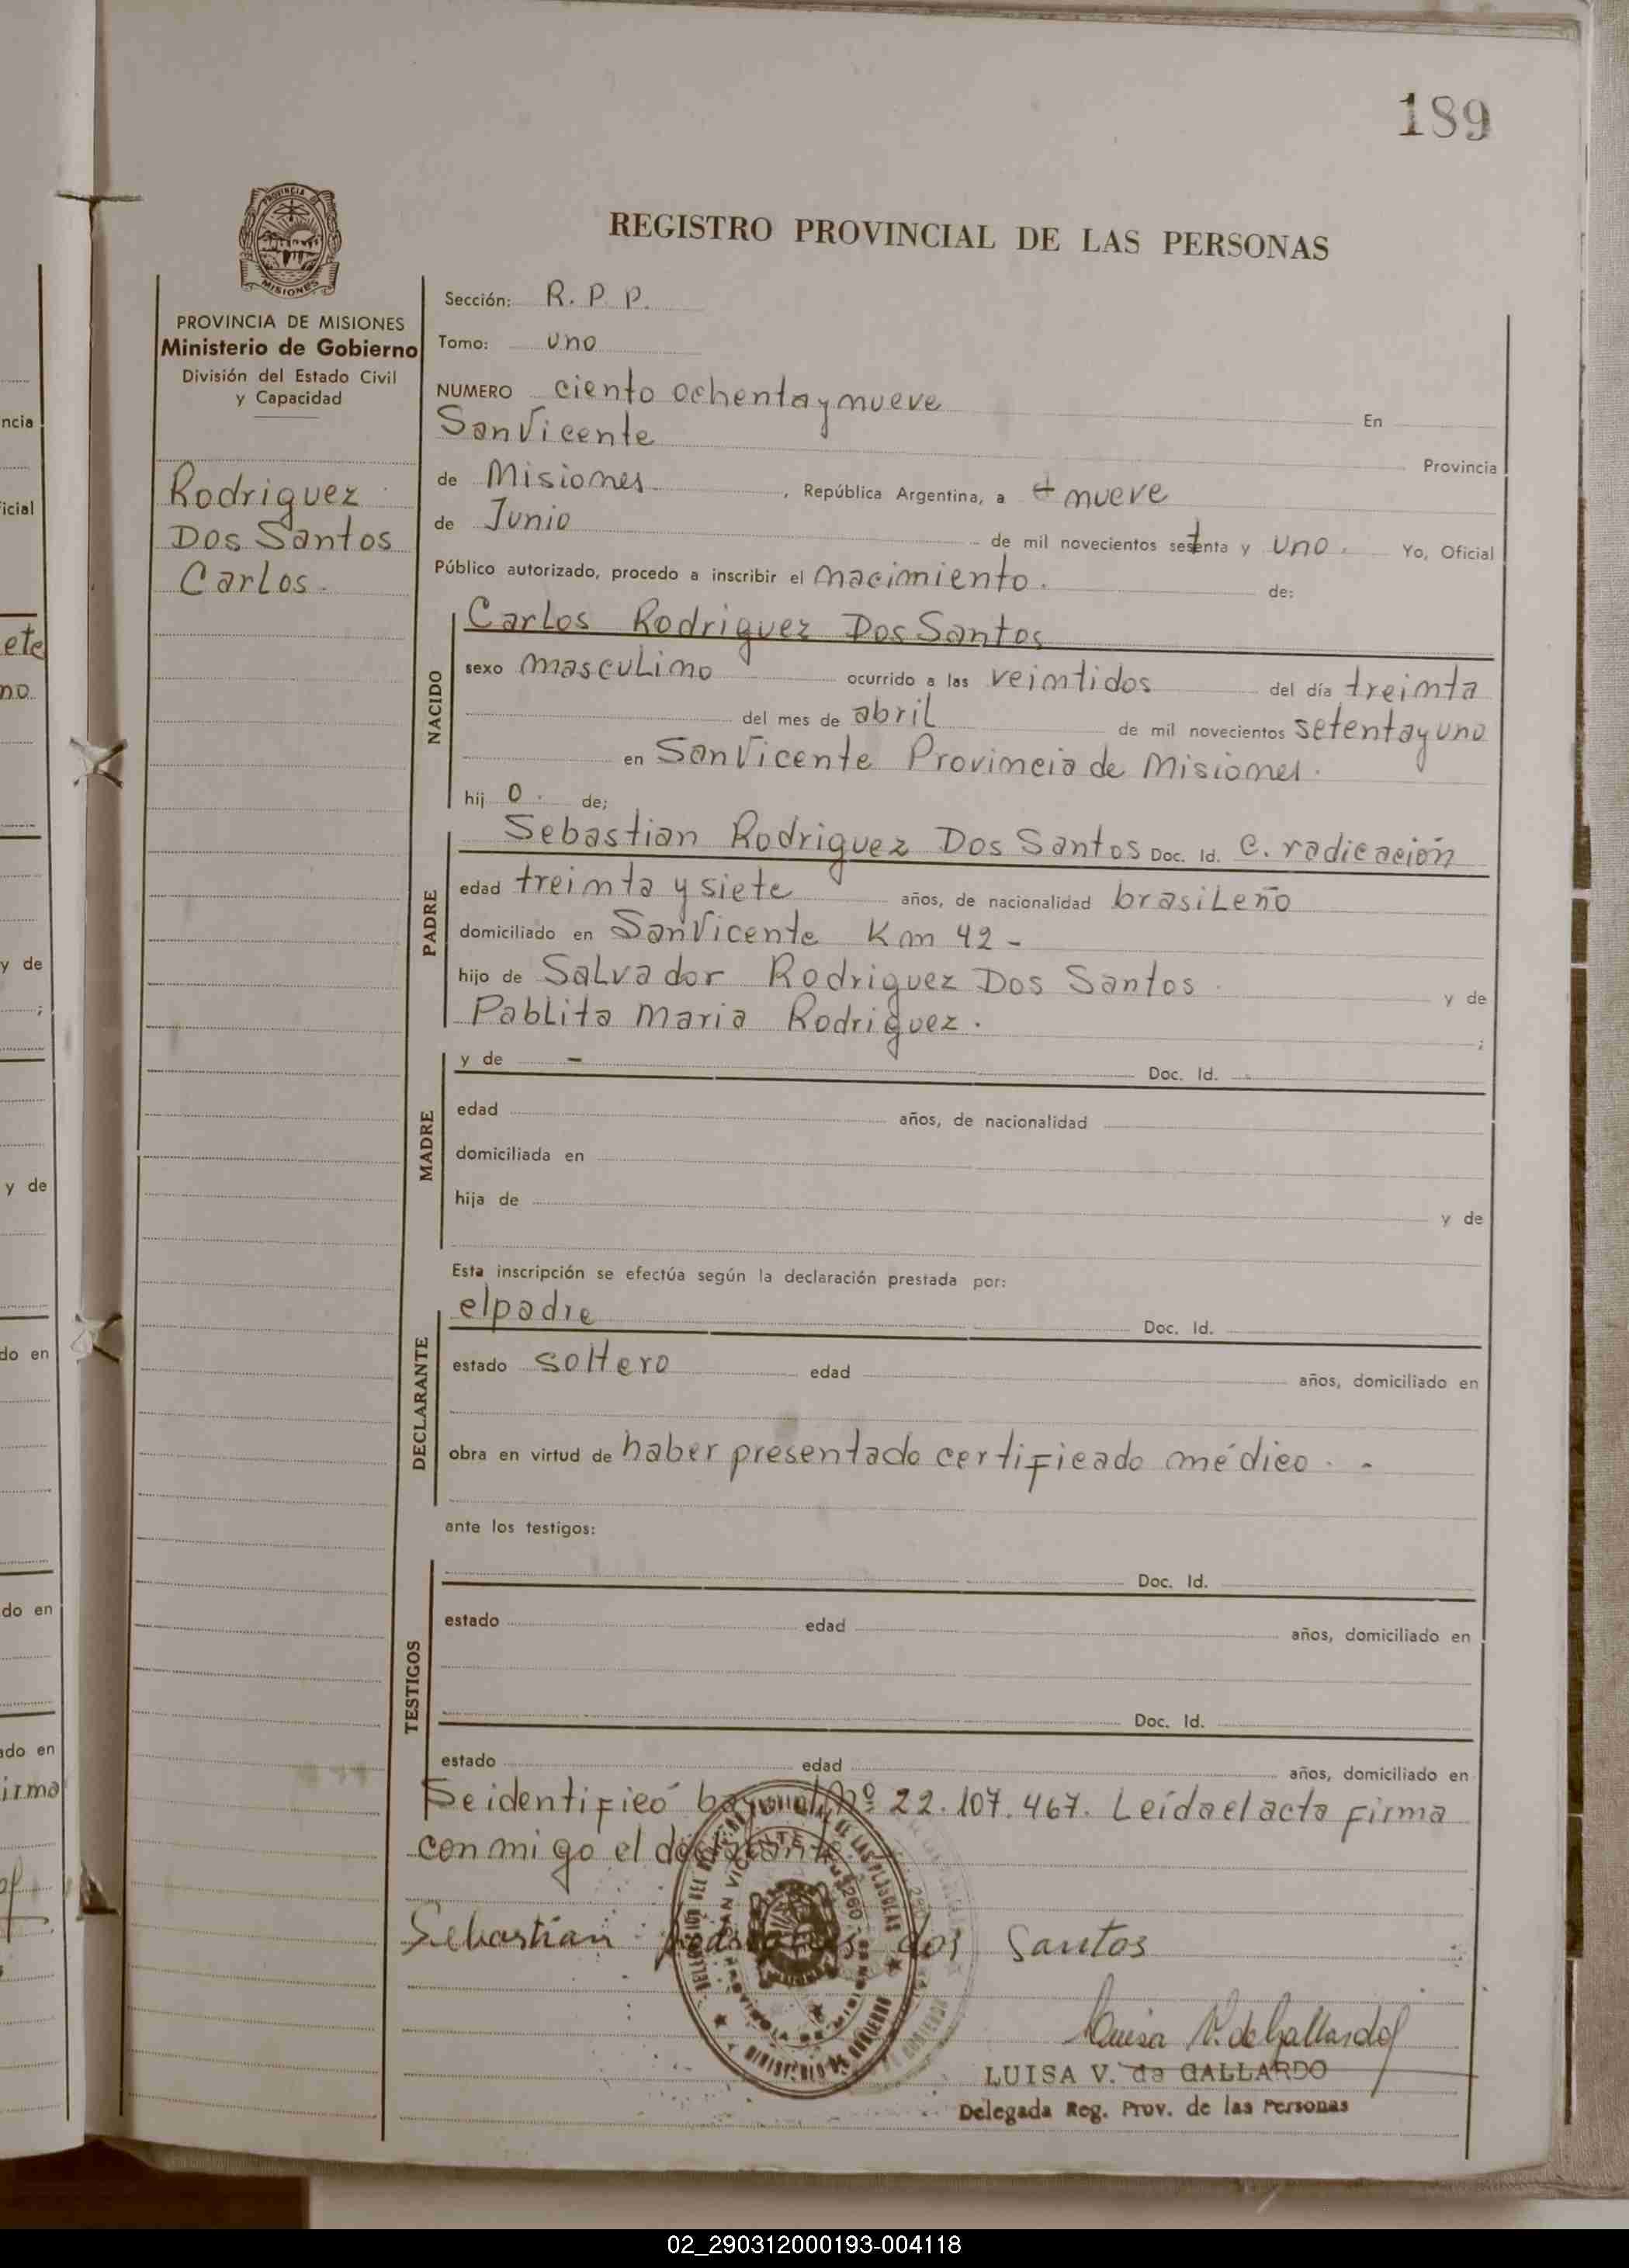 189
PROVINCIA
MISIONES
REGISTRO PROVINCIAL DE LAS PERSONAS
PROVINCIA DE MISIONES
Ministerio de Gobierno
División del Estado Civil
y Capacidad
Rodriguez
Dos Santos
Carlos.
Sección: R. P. P.
Tomo: uno
NUMERO ciento ochenta y nueve En
San Vicente Provincia
de Misiones , República Argentina, a nueve
de Junio de mil novecientos setenta y uno. Yo, Oficial
Público autorizado, procedo a inscribir el nacimiento. de:
NACIDO
Carlos Rodriguez Dos Santos
sexo masculino ocurrido a las veintidos del día treinta
del mes de abril de mil novecientos setenta y uno
en San Vicente Provincia de Misiones.
hij o. de;
PADRE
Sebastian Rodriguez Dos Santos Doc. Id. C. radicación
edad treinta y siete años, de nacionalidad brasileño
domiciliado en San Vicente Km 42 -
hijo de Salvador Rodriguez Dos Santos y de
Pablita Maria Rodriguez. ;
MADRE
y de - Doc. Id.
edad años, de nacionalidad
domiciliada en
hija de y de
Esta inscripción se efectúa según la declaración prestada por:
DECLARANTE
el padre Doc. Id.
estado soltero edad años, domiciliado en
obra en virtud de haber presentado certificado médico. -
ante los testigos:
TESTIGOS
Doc. Id.
estado edad años, domiciliado en
Doc. Id.
estado edad años, domiciliado en
Se identificó bajo el Nº 22.107.467. Leída el acta firma
conmigo el declarante.
Sebastian dos Santos
Luisa V. de Gallardo
LUISA V. de GALLARDO
Delegada Reg. Prov. de las Personas
ncia
icial
ete
no
y de
;
y de
do en
do en
ado en
irma
02_290312000193-004118